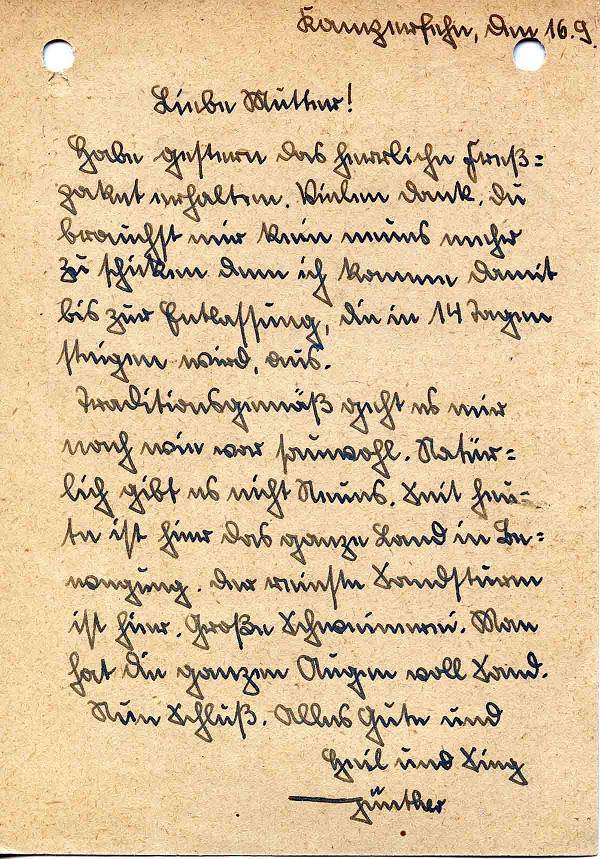 Kamperfehn, den 16.9.
Liebe Mutter!
Habe gestern das herrliche Freß=
paket erhalten. Vielen Dank. Du
brauchst mir kein neues mehr
zu schicken denn ich komme damit
bis zur Entlassung, die in 14 Tagen
steigen wird, aus.
Traditionsgemäß geht es mir
nach wie vor sauwohl. Natür=
lich gibt es nicht Neues. Seit heu-
te ist hier das ganze Land in Be=
wegung. Der reinste Sandsturm
ist hier. Große Schweinerei. Man
hat die ganzen Augen voll Sand.
Nun Schluß. Alles Gute und
Heil und Sieg
Günther